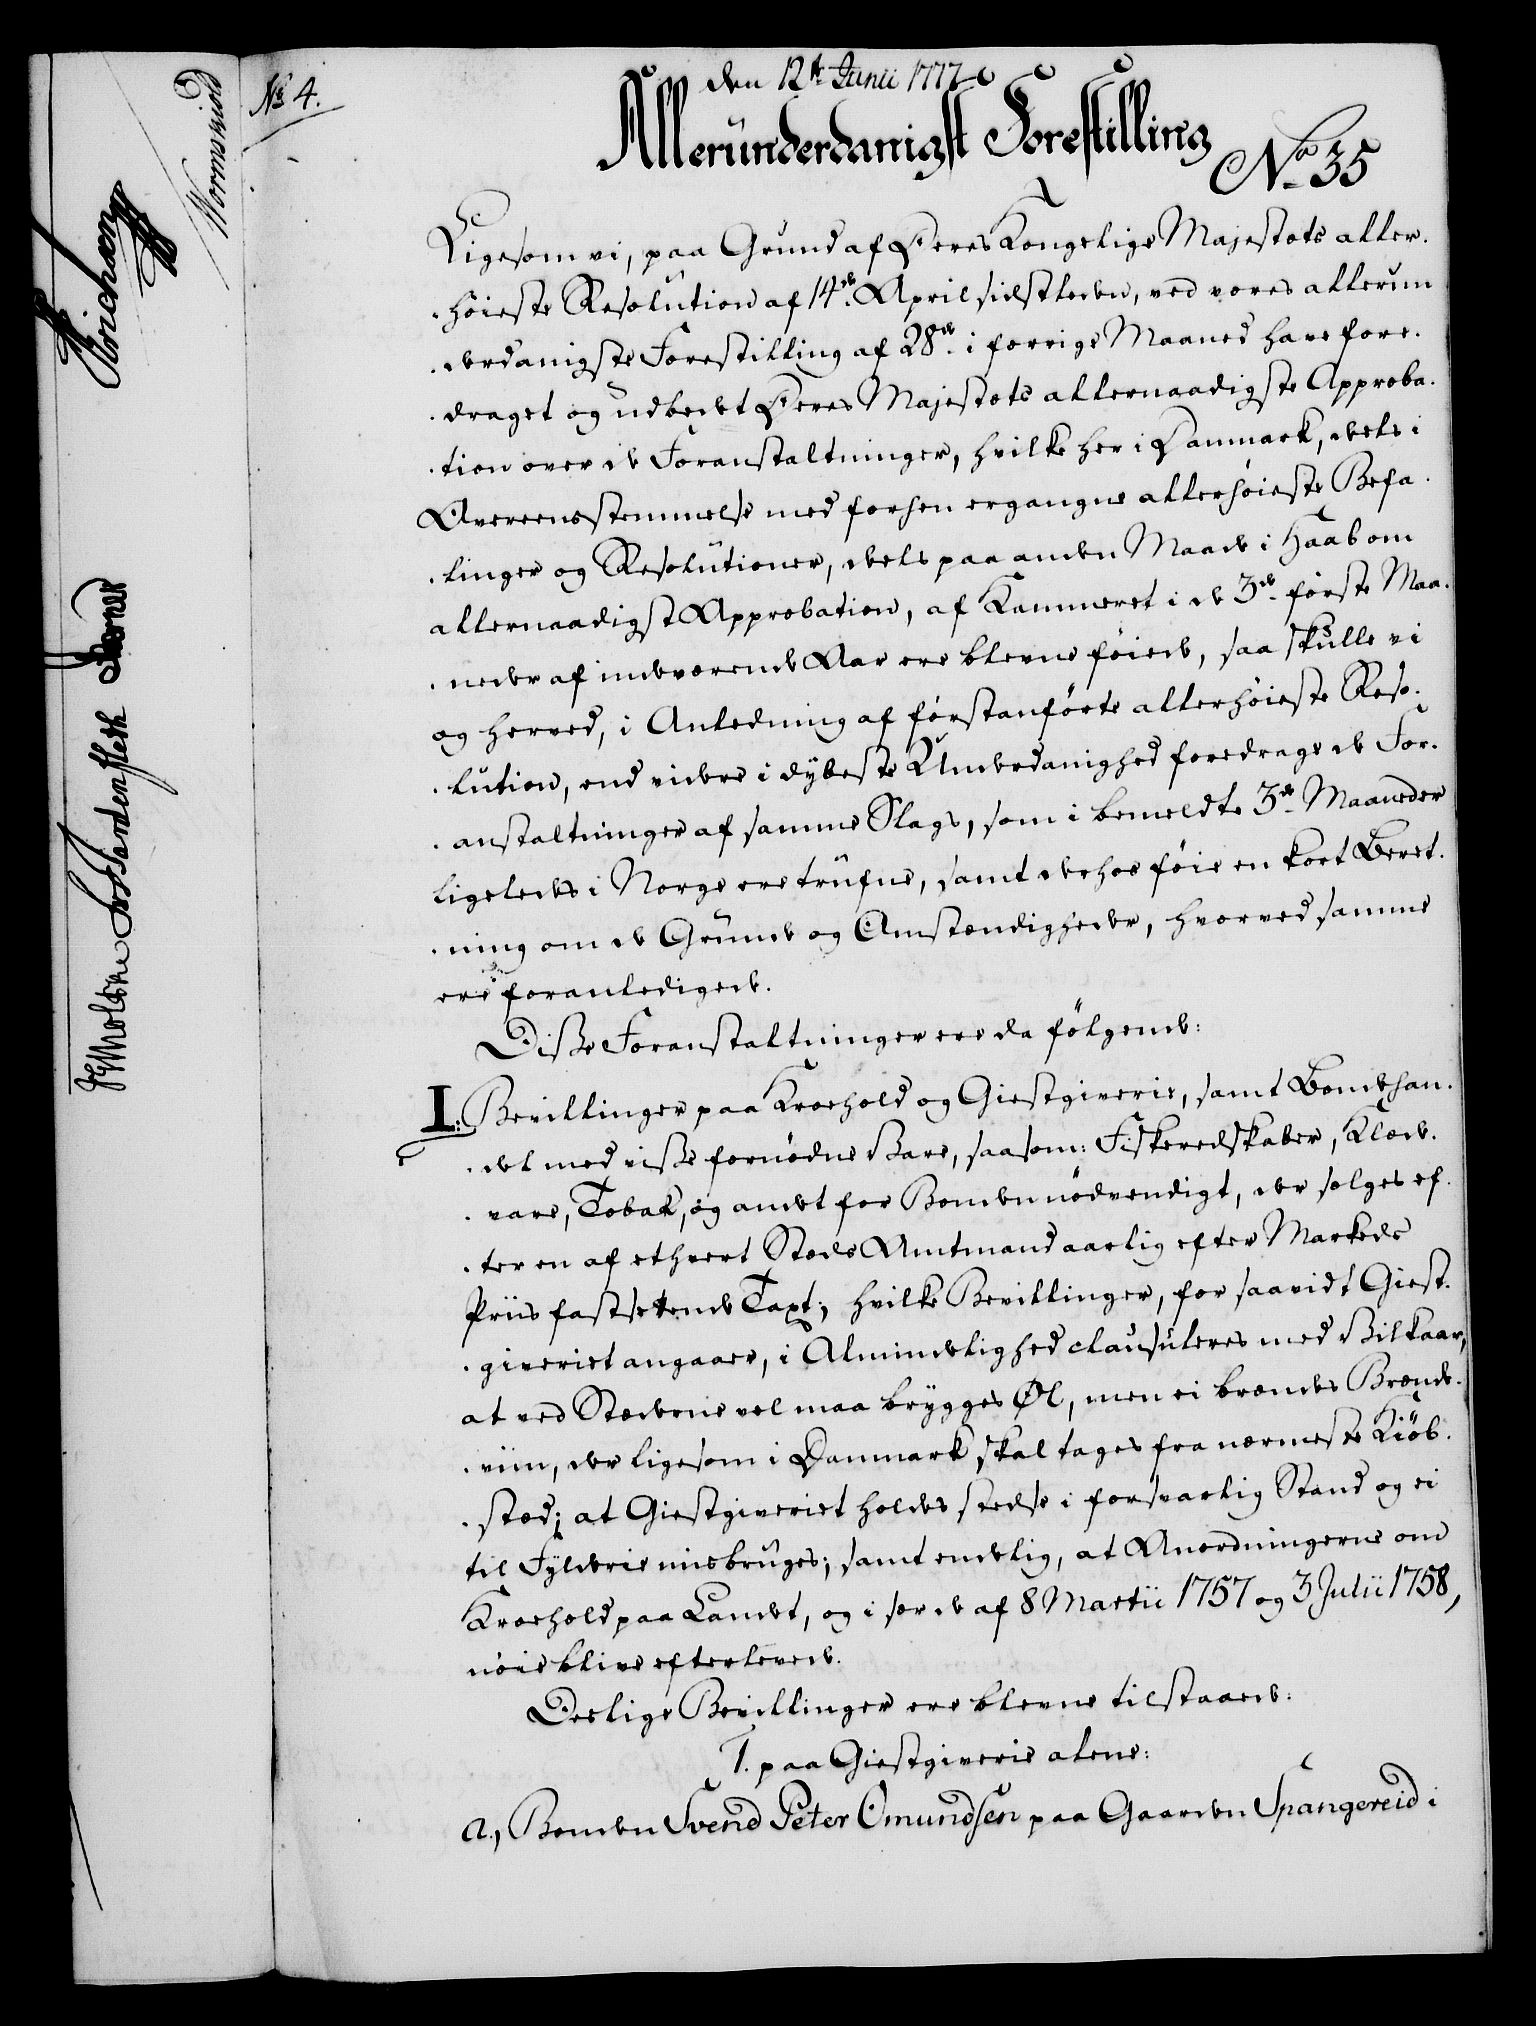 No 4.
den 12te Junii 1777
Allerunderdanigst Forestilling
No 35
Ligesom vi, paa Grund af Deres Kongelige Majestæts aller-
høieste Resolution af 14de April sidstleden, ved vores allerun-
derdanigste Forestilling af 28de i forrige Maaned have fore-
draget og udbedet Deres Majestæts allernaadigste Approba-
tion over de Foranstaltninger, hvilke her i Danmark, dels i
Overeensstemmelse med forhen ergangne allerhøieste Befa-
linger og Resolutioner, dels paa anden Maade i Haab om
allernaadigst Approbation, af Kammeret i de 3de første Maa-
neder af indeværende Aar ere blevne føiede, saa skulle vi
og herved, i Anledning af førstanførte allerhøieste Reso-
lution, end videre i dybeste Underdanighed foredrage de For-
anstaltninger af samme Slags, som i bemeldte 3de Maaneder
ligeledes i Norge ere trufne, samt dehos føie en kort Beret-
ning om de Grunde og Omstændigheder, hvorved samme
ere foranledigede.
Disse Foranstaltninger ere da følgende:
I: Bevillinger paa Kroehold og Giestgiverie, samt Bondehan-
del med visse fornødne Vare, saasom: Fiskeredskaber, Klæde-
vare, Tobak, og andet for Bonden nødvendigt, der sælges ef-
ter en af ethvert Steds Amtmand aarlig efter Markeds
Priis fastsettende Taxt; hvilke Bevillinger, for saavidt Giest-
giveriet angaaer, i Almindelighed clausuleres med Vilkaar,
at ved Stæderne vel maa brygges Øl, men ei brændes Brænde-
viin, der ligesom i Danmark skal tages fra nærmeste Kiøb-
stæd; at Giestgiveriet holdes stedse i forsvarlig Stand og ei
til Fylderie misbruges; samt endelig, at Anordningerne om
Kroehold paa Landet, og i sær de af 8 Martii 1757 og 3 Julii 1758,
nøie blive efterlevede.
Deslige Bevillinger ere blevne tilstaaede:
1. paa Giestgiverie alene:
a., Bonden Svend Peter Omundsen paa Gaarden Spangereid i